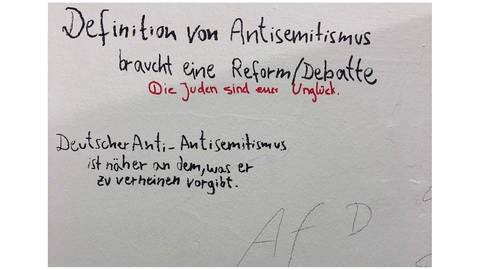 Definition von Antisemitismus
braucht eine Reform/Debatte
Die Juden sind euer Unglück.
Deutscher Anti-Antisemitismus
ist näher an dem, was er
zu verheinen vorgibt.
AfD